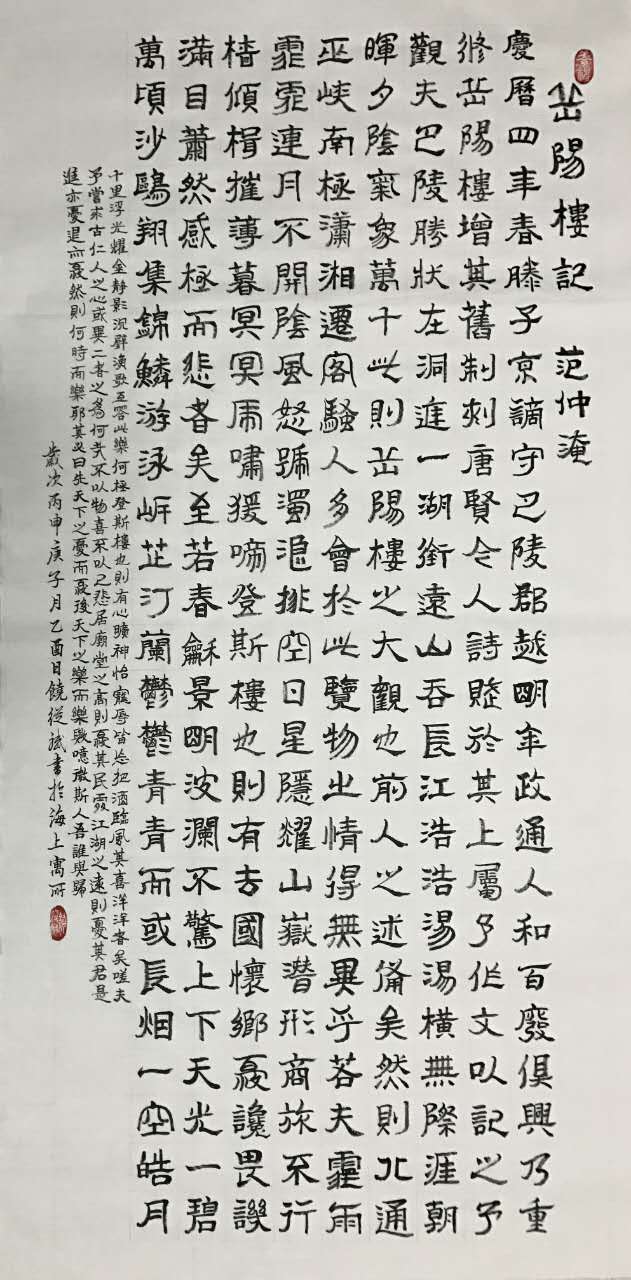 岳陽樓記 范仲淹
慶曆四年春滕子京謫守巴陵郡越明年政通人和百廢俱興乃重
修岳陽樓增其舊制刻唐賢令人詩賦於其上屬予作文以記之予
觀夫巴陵勝狀在洞庭一湖銜遠山吞長江浩浩湯湯橫無際涯朝
暉夕陰氣象萬千此則岳陽樓之大觀也前人之述備矣然則北通
巫峽南極瀟湘遷客騷人多會於此覽物之情得無異乎若夫霪雨
霏霏連月不開陰風怒號濁浪排空日星隱耀山嶽潛形商旅不行
檣傾楫摧薄暮冥冥虎嘯猨啼登斯樓也則有去國懷鄉憂讒畏譏
滿目蕭然感極而悲者矣至若春龢景明波瀾不驚上下天光一碧
萬頃沙鷗翔集錦鱗游泳岸芷汀蘭鬱鬱青青而或長烟一空皓月
千里浮光耀金靜影沉璧漁歌互答此樂何極登斯樓也則有心曠神怡寵辱皆忘把酒臨風其喜洋洋者矣嗟夫
予嘗求古仁人之心或異二者之為何哉不以物喜不以己悲居廟堂之高則憂其民處江湖之遠則憂其君是
進亦憂退亦憂然則何時而樂耶其必曰先天下之憂而憂後天下之樂而樂歟噫微斯人吾誰與歸
歲次丙申庚子月乙酉日饒從斌書於海上寓所